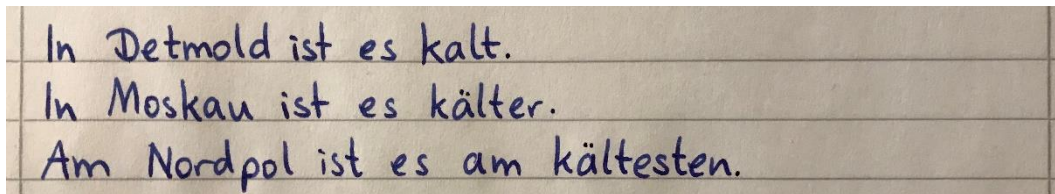 In Detmold ist es kalt.
In Moskau ist es kälter.
Am Nordpol ist es am kältesten.